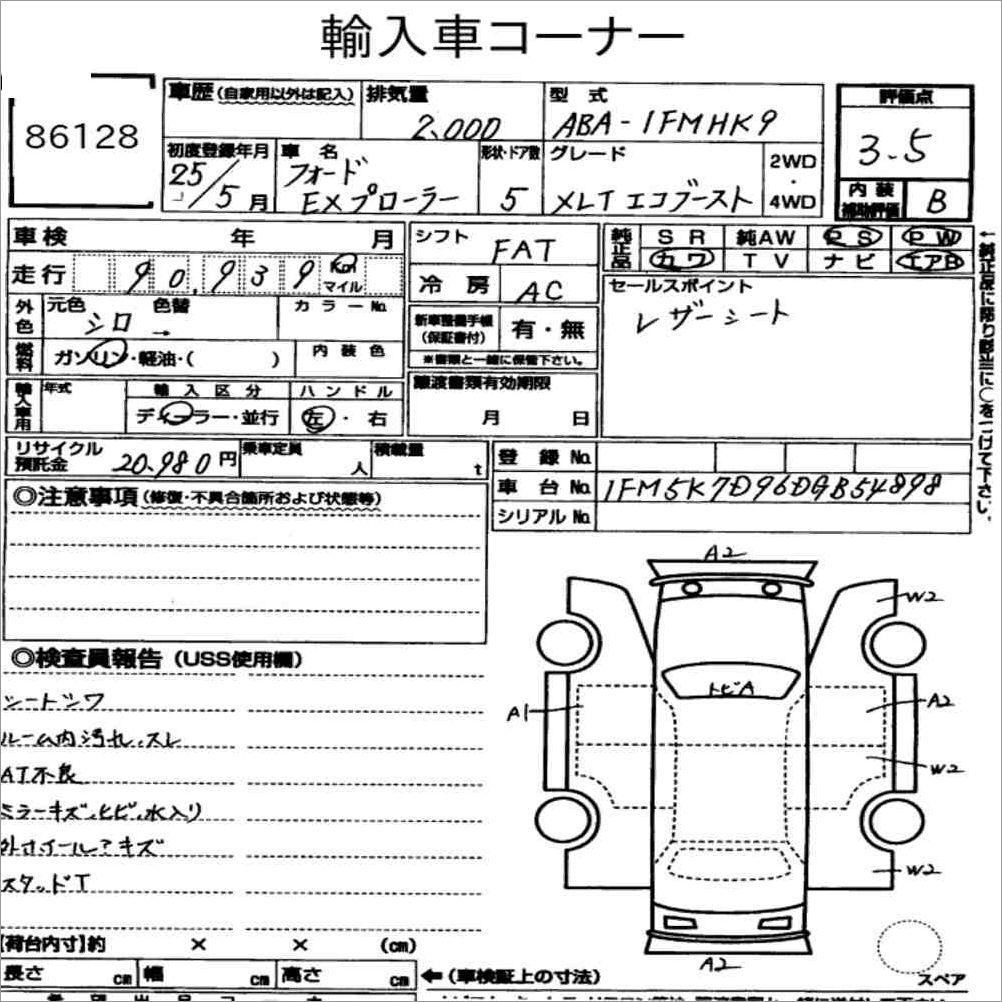 輸入車コーナー
86128
車歴(自家用以外は記入) 排気量 型式 評価点
2,000 ABA-1FMHK9 3.5
初度登録年月 車名 形状・ドア数 グレード 2WD・4WD 内装補助評価 B
25/5月 フォード EXプローラー 5 XLT エコブースト
車検 年 月 シフト FAT 純正品 SR 純AW PS PW
カワ TV ナビ エアB
走行 90,939 Km マイル 冷房 AC
セールスポイント
レザーシート
外色 元色 シロ 色替 → カラーNo.
新車整備手帳(保証書付) 有・無
※書類と一緒に保管下さい。
燃料 ガソリン・軽油・( ) 内装色
輸入車用 年式 輸入区分 ハンドル
ディーラー・並行 左・右
譲渡書類有効期限
月 日
リサイクル預託金 20,980円 乗車定員 人 積載量 t
登録No.
車台No. 1FM5K7D96DGB54898
シリアルNo.
◎注意事項(修復・不具合箇所および状態等)
◎検査員報告(USS使用欄)
シートシワ
ルーム内汚れ、スレ
AT不良
ミラーキズ、ヒビ、水入り
外ホイール?キズ
スタッドT
A2
W2
トビA
A1
A2
W2
W2
A2
スペア
【荷台内寸】約 × × (cm)
長さ cm 幅 cm 高さ cm ←(車検証上の寸法)